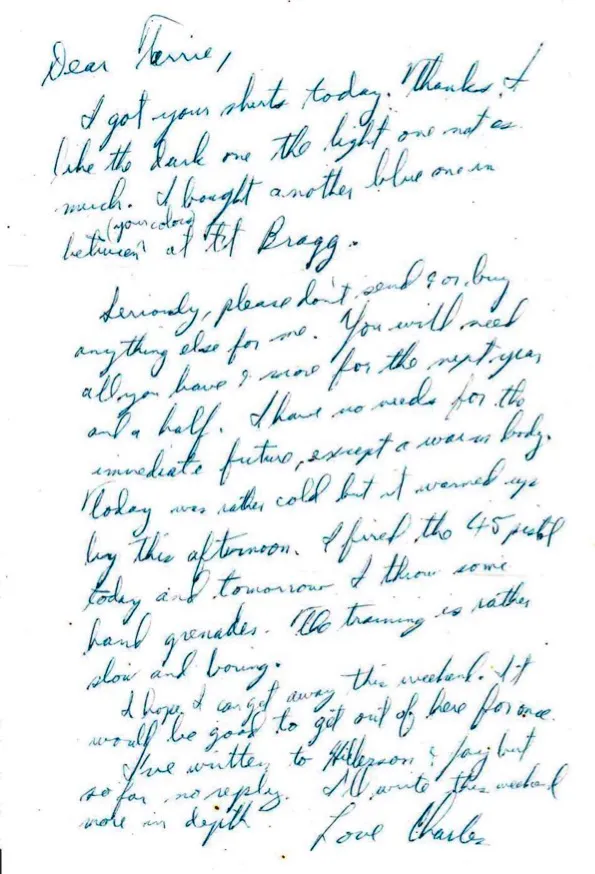 Dear Terrie,
I got your shirts today. Thanks, I
like the dark one the light one not as
much. I bought another blue one in
(your colors)
between at Ft Bragg.
Seriously, please don't send & or buy
anything else for me. You will need
all you have & more for the next year
and a half. I have no needs for the
immediate future, except a warm body.
Today was rather cold but it warmed up
by this afternoon. I fired the 45 pistol
today and tomorrow I throw some
hand grenades. The training is rather
slow and boring.
I hope I can get away this weekend. It
would be good to get out of here for once.
I've written to & Jay but
so far no reply. I'll write this weekend
more in depth.
Love Charles